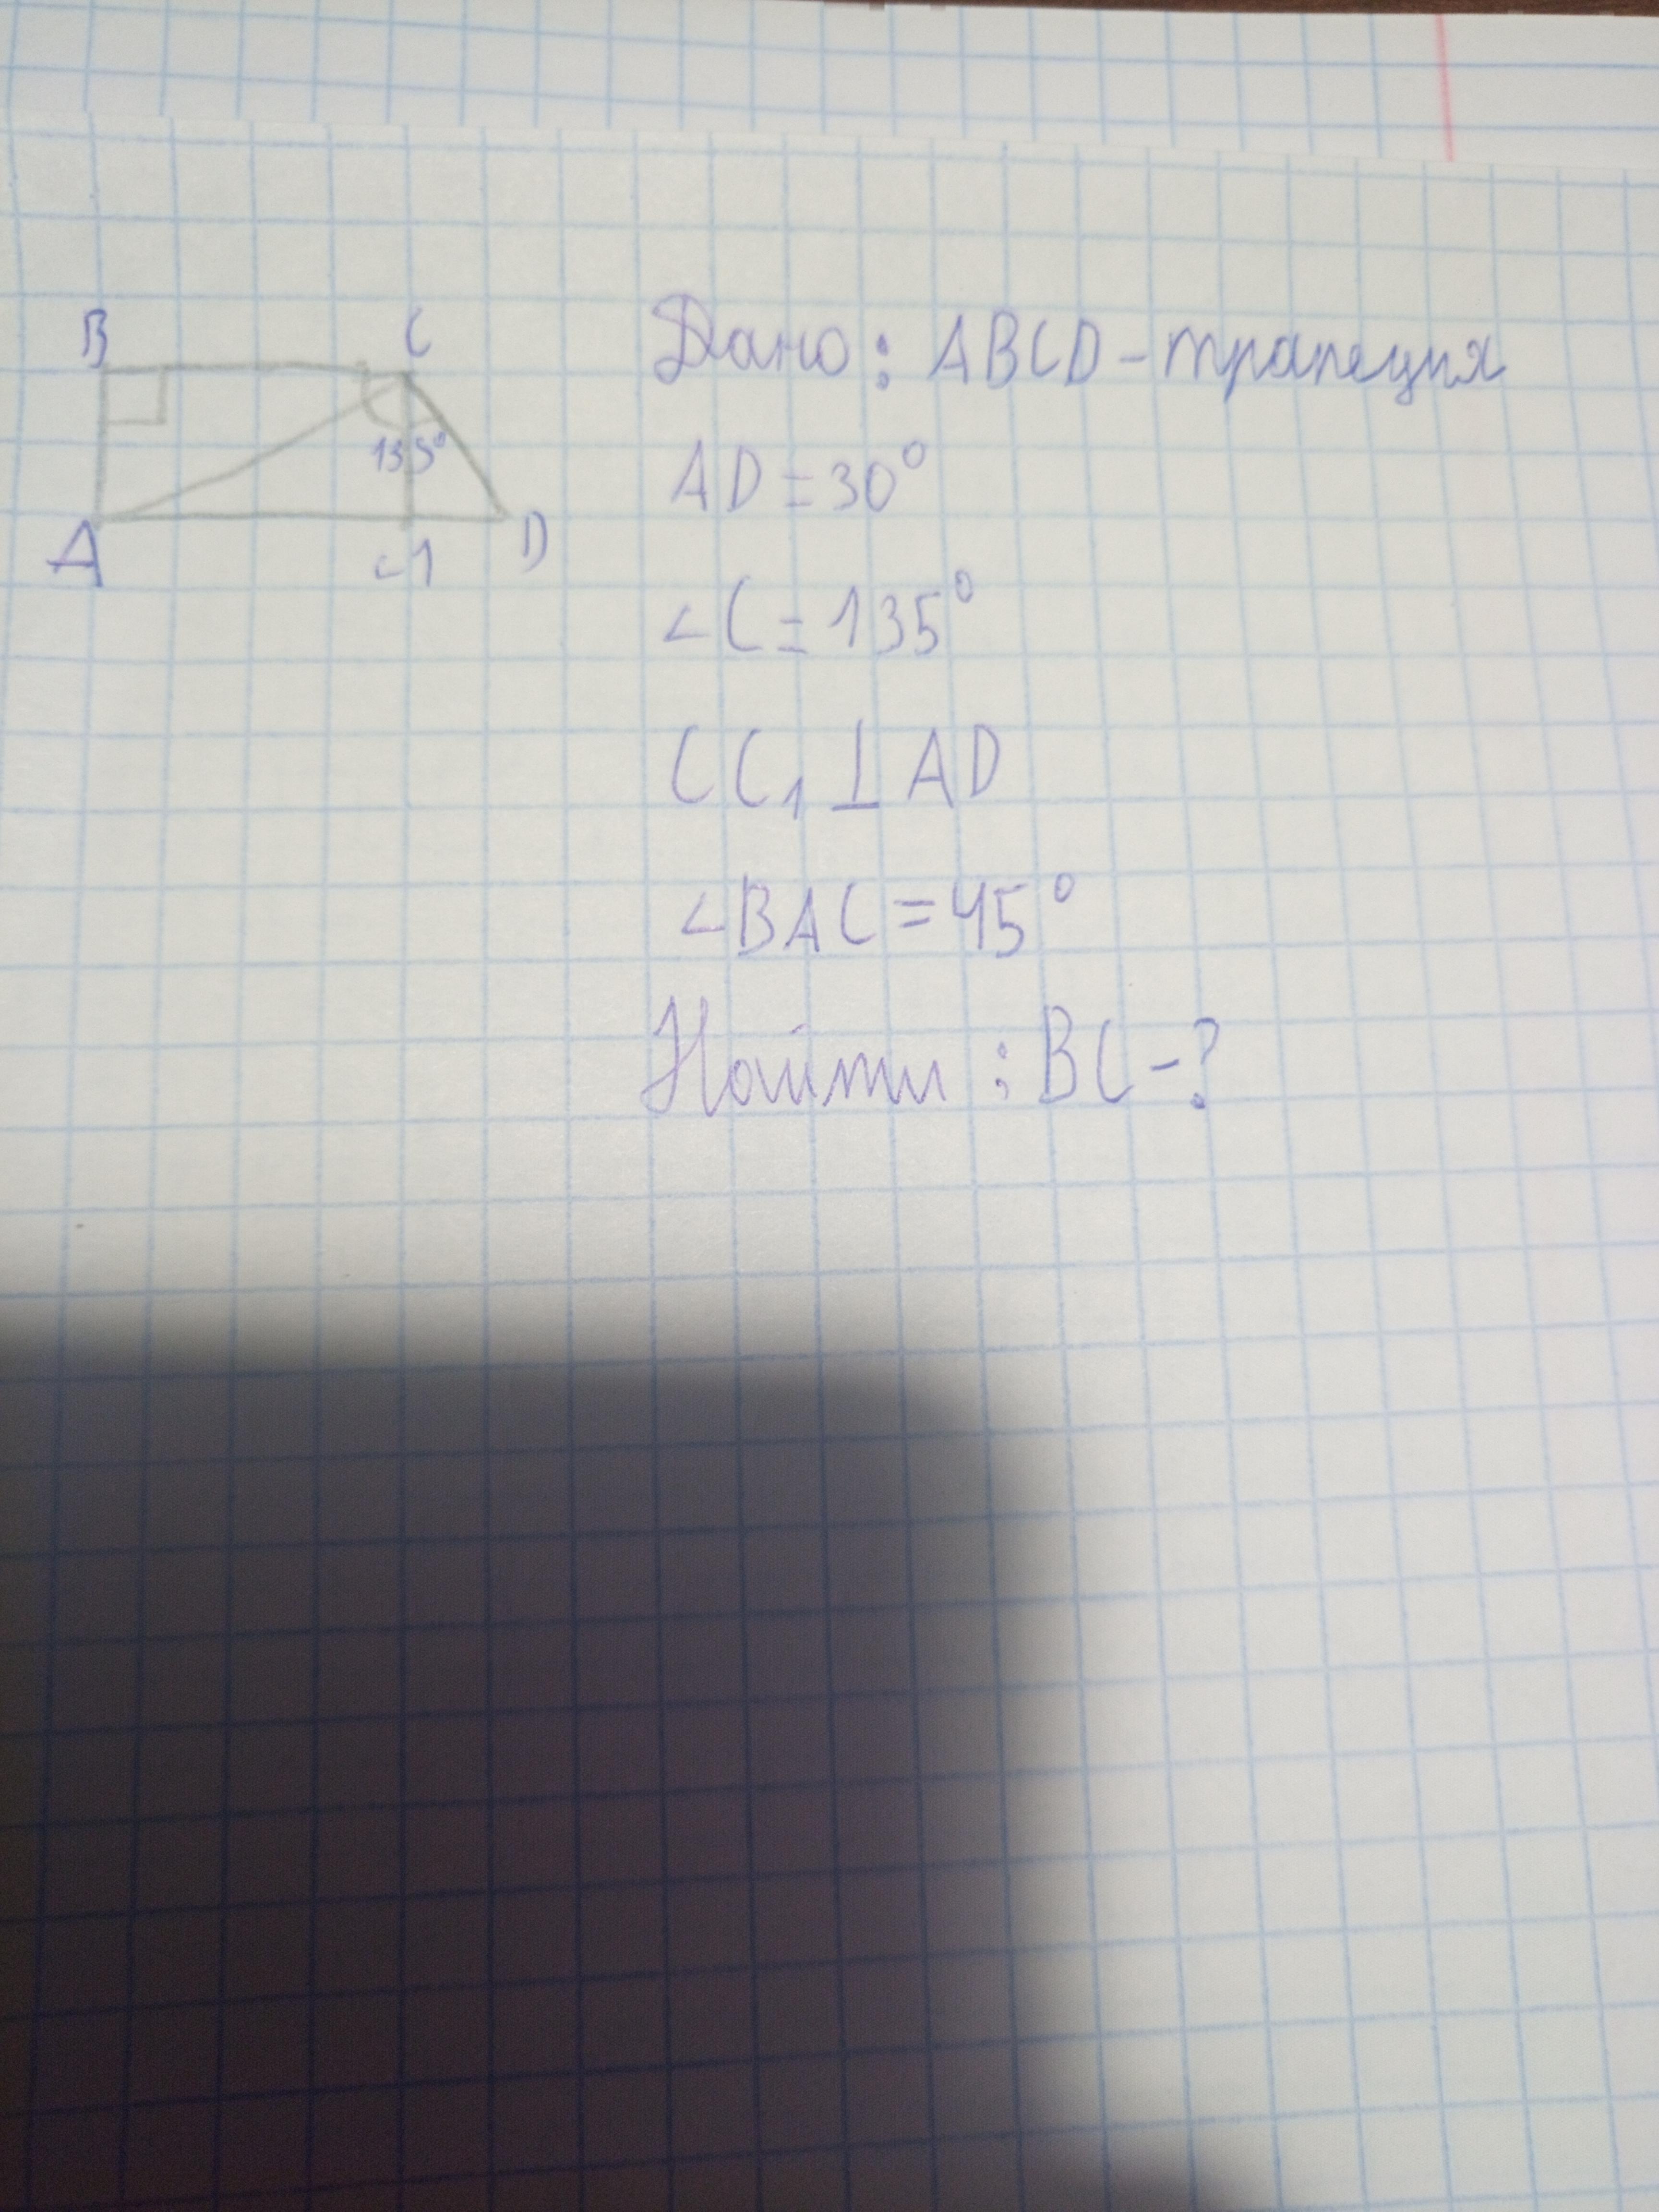 B C
135°
A C1 D
Дано: ABCD - трапеция
AD = 30°
∠C = 135°
CC₁ ⊥ AD
∠BAC = 45°
Найти: BC - ?